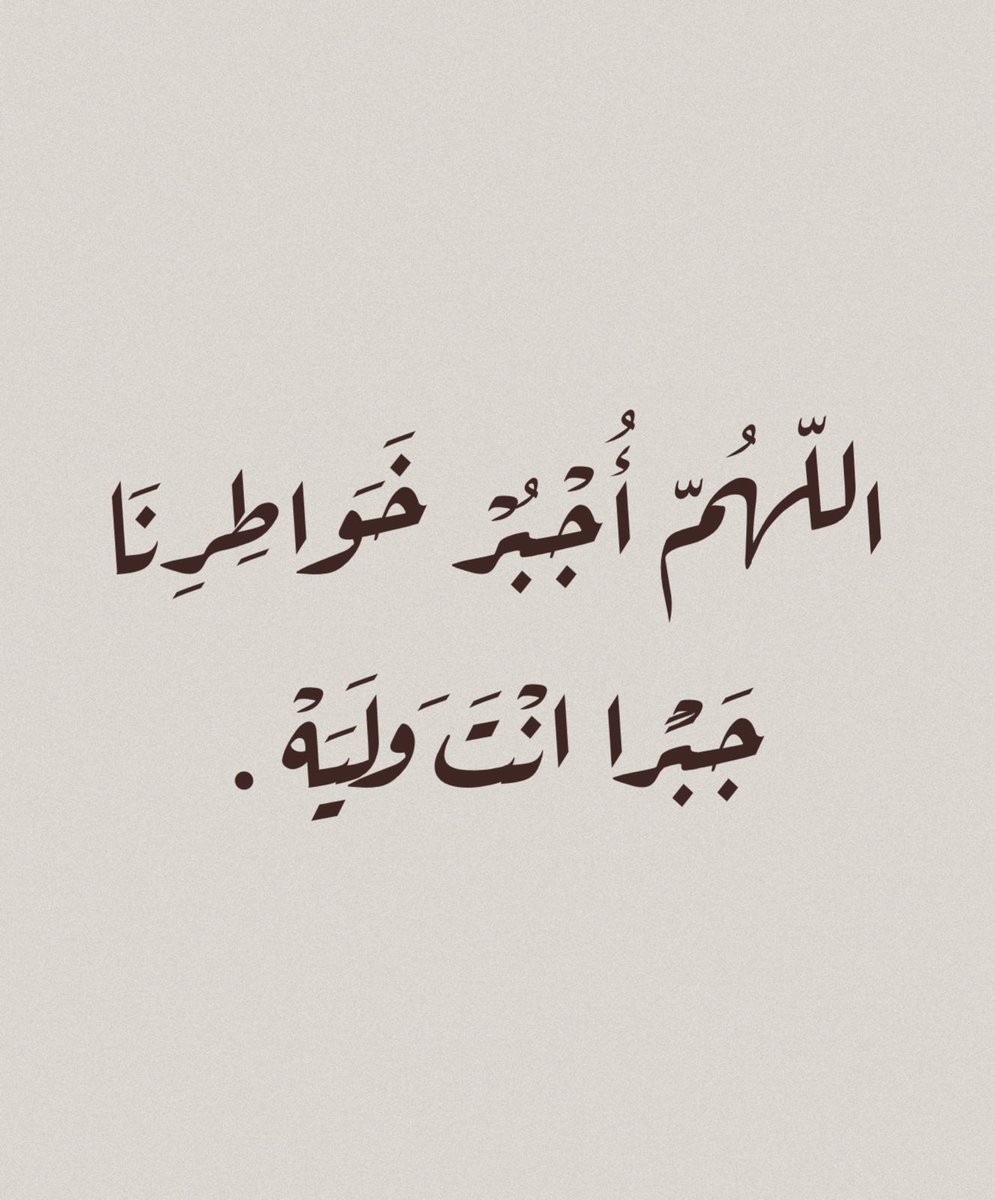 اللّهُمّ أُجْبُرْ خَوَاطِرِنَا
جَبْرًا انْتَ وَلَيَهْ .